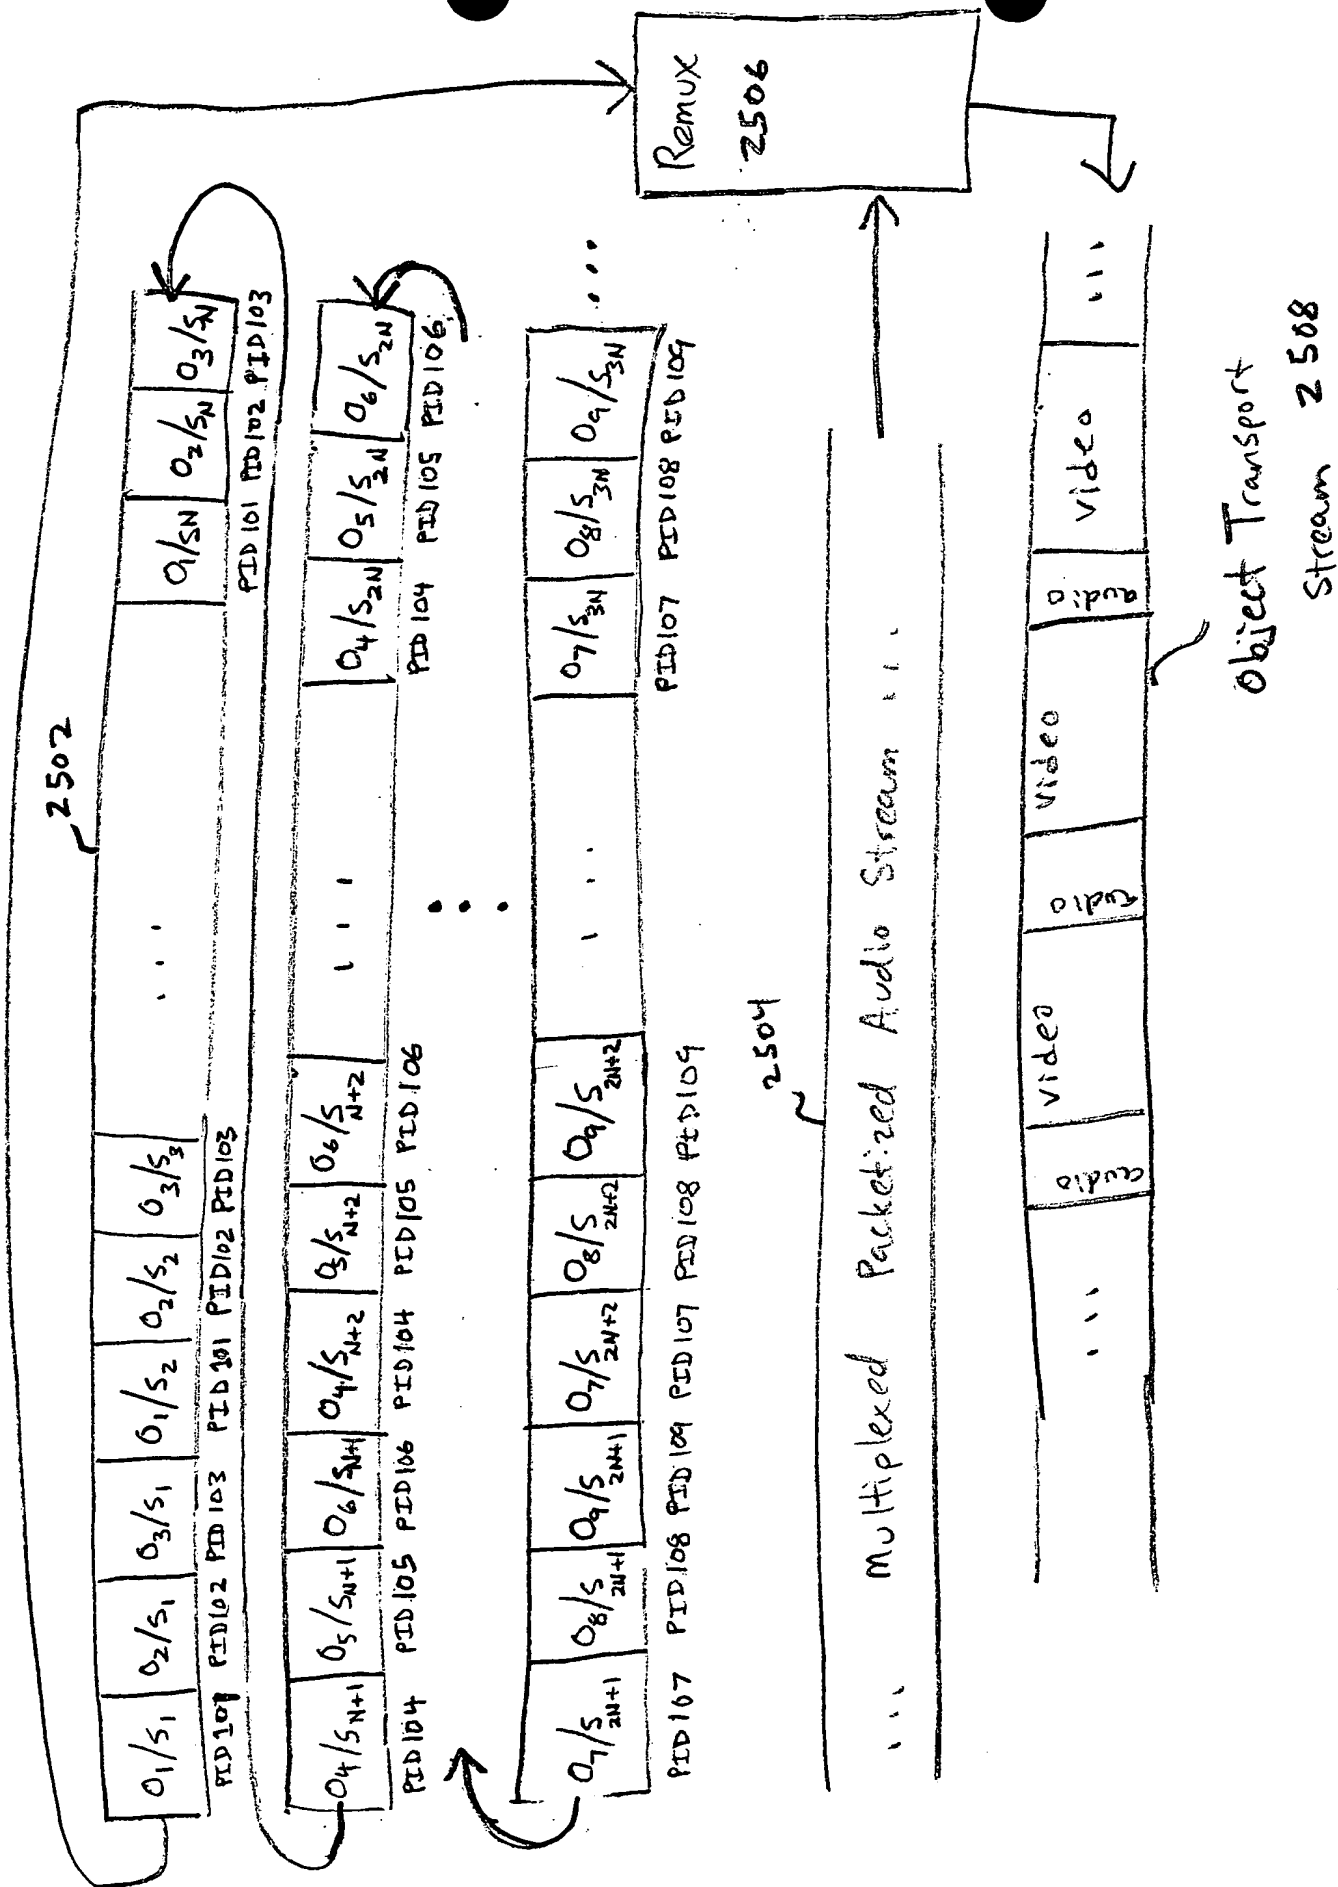 2502
O₁/S₁ O₂/S₁ O₃/S₁ O₁/S₂ O₂/S₂ O₃/S₃ ... O₁/SN O₂/SN O₃/SN
PID101 PID102 PID103 PID101 PID102 PID103 PID101 PID102 PID103
Remux
2506
O₄/SN+1 O₅/SN+1 O₆/SN+1 O₄/SN+2 O₅/SN+2 O₆/SN+2 ... O₄/S2N O₅/S2N O₆/S2N
PID104 PID105 PID106 PID104 PID105 PID106 PID104 PID105 PID106
...
O₇/S2N+1 O₈/S2N+1 O₉/S2N+1 O₇/S2N+2 O₈/S2N+2 O₉/S2N+2 ... O₇/S3N O₈/S3N O₉/S3N ...
PID107 PID108 PID109 PID107 PID108 PID109 PID107 PID108 PID109
2504
... Multiplexed Packetized Audio Stream ...
... audio video audio video audio video ...
Object Transport
Stream 2508